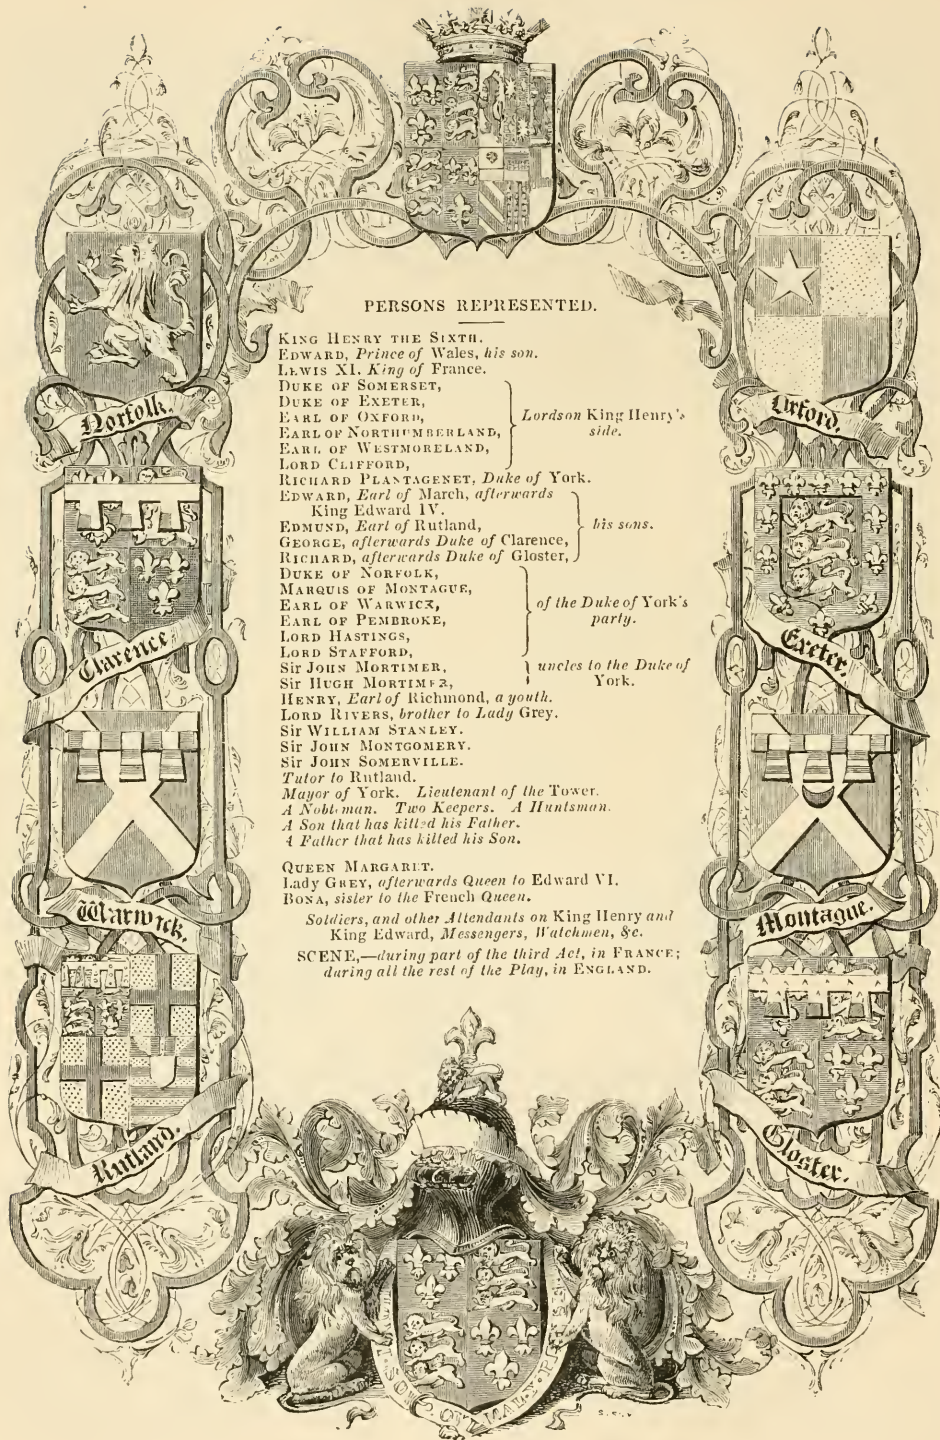 PERSONS REPRESENTED.
KING HENRY THE SIXTH.
EDWARD, Prince of Wales, his son.
LEWIS XI. King of France.
DUKE OF SOMERSET,
DUKE OF EXETER,
EARL OF OXFORD,
EARL OF NORTHUMBERLAND,
EARL OF WESTMORELAND,
LORD CLIFFORD,
Lords on King Henry's
side.
RICHARD PLANTAGENET, Duke of York.
EDWARD, Earl of March, afterwards
King Edward IV.
EDMUND, Earl of Rutland,
GEORGE, afterwards Duke of Clarence,
RICHARD, afterwards Duke of Gloster,
his sons.
DUKE OF NORFOLK,
MARQUIS OF MONTAGUE,
EARL OF WARWICK,
EARL OF PEMBROKE,
LORD HASTINGS,
LORD STAFFORD,
of the Duke of York's
party.
Sir JOHN MORTIMER,
Sir HUGH MORTIMER,
uncles to the Duke of
York.
HENRY, Earl of Richmond, a youth.
LORD RIVERS, brother to Lady Grey.
Sir WILLIAM STANLEY.
Sir JOHN MONTGOMERY.
Sir JOHN SOMERVILLE.
Tutor to Rutland.
Mayor of York. Lieutenant of the Tower.
A Nobleman. Two Keepers. A Huntsman.
A Son that has killed his Father.
A Father that has killed his Son.
QUEEN MARGARET.
Lady GREY, afterwards Queen to Edward VI.
BONA, sister to the French Queen.
Soldiers, and other Attendants on King Henry and
King Edward, Messengers, Watchmen, &c.
SCENE,—during part of the third Act, in FRANCE;
during all the rest of the Play, in ENGLAND.
Norfolk.
Clarence.
Warwick.
Rutland.
Oxford.
Exeter.
Montague.
Gloster.